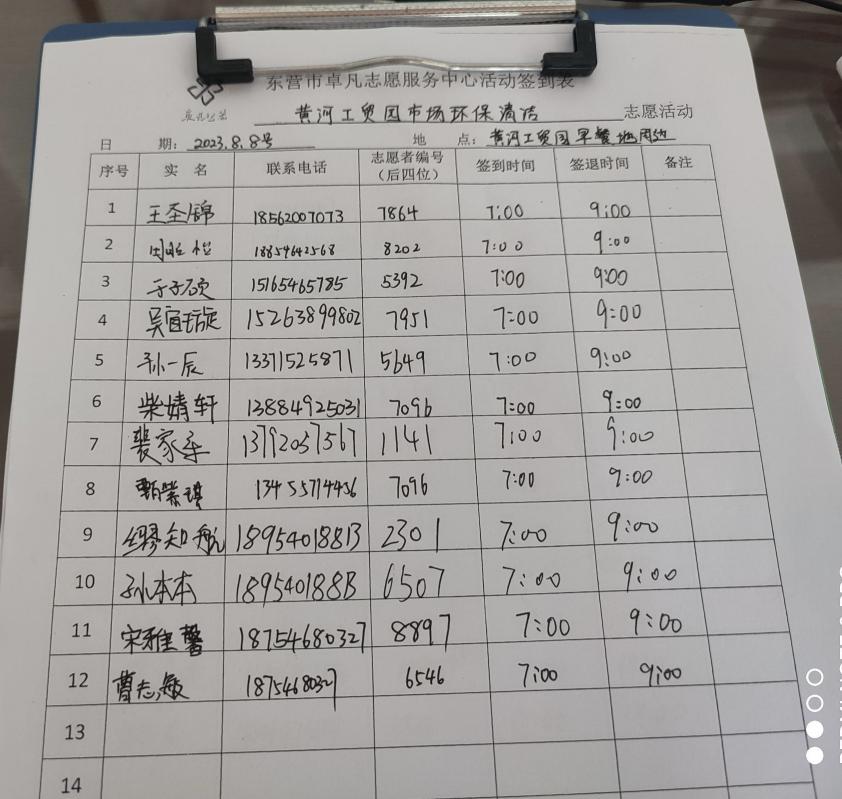 东营市卓凡志愿服务中心活动签到表
黄河工贸园市场环保清洁 志愿活动
日 期: 2023.8.8号 地 点: 黄河工贸园早餐 周边
序号 实 名 联系电话 志愿者编号（后四位） 签到时间 签退时间 备注
1 王圣锦 18562007073 7864 7:00 9:00
2 18854642568 8202 7:00 9:00
3 于子硕 15165465785 5392 7:00 9:00
4 吴宣琁 15263899802 7951 7:00 9:00
5 孙一辰 13371525871 5649 7:00 9:00
6 柴婧轩 13884925031 7096 7:00 9:00
7 裴家 13792037567 1141 7:00 9:00
8 甄紫琪 13455714456 7096 7:00 9:00
9 缪知航 18954018813 2301 7:00 9:00
10 孙本本 18954018813 6507 7:00 9:00
11 宋雅馨 18754680327 8897 7:00 9:00
12 曹志敏 18754680327 6546 7:00 9:00
13
14